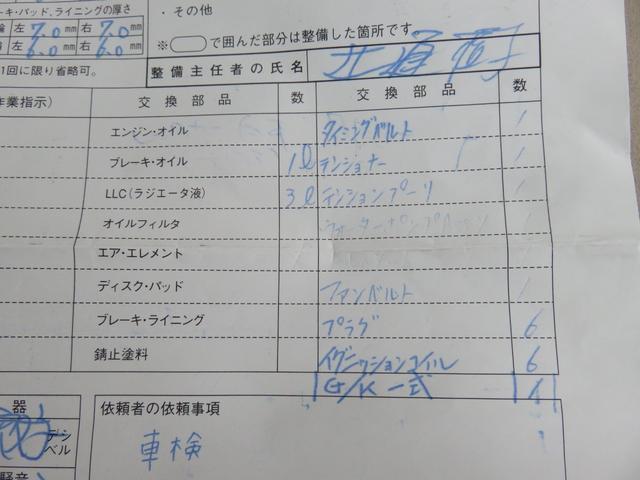 ・その他
キ・パッド、ライニングの厚さ
左 7.0 mm 右 7.0 mm
左 6.0 mm 右 6.0 mm
※ で囲んだ部分は整備した箇所です
1回に限り省略可。
整備主任者の氏名
作業指示) 交換部品 数 交換部品 数
エンジン・オイル タイミングベルト 1
ブレーキ・オイル 1ℓ テンショナー 1
LLC(ラジエータ液) 3ℓ テンションプーリ 1
オイルフィルタ 1
エア・エレメント
ディスク・パッド ファンベルト 1
ブレーキ・ライニング プラグ 6
錆止塗料 イグニッションコイル 6
G/K一式 1
器 依頼者の依頼事項
デシベル
車検
騒音